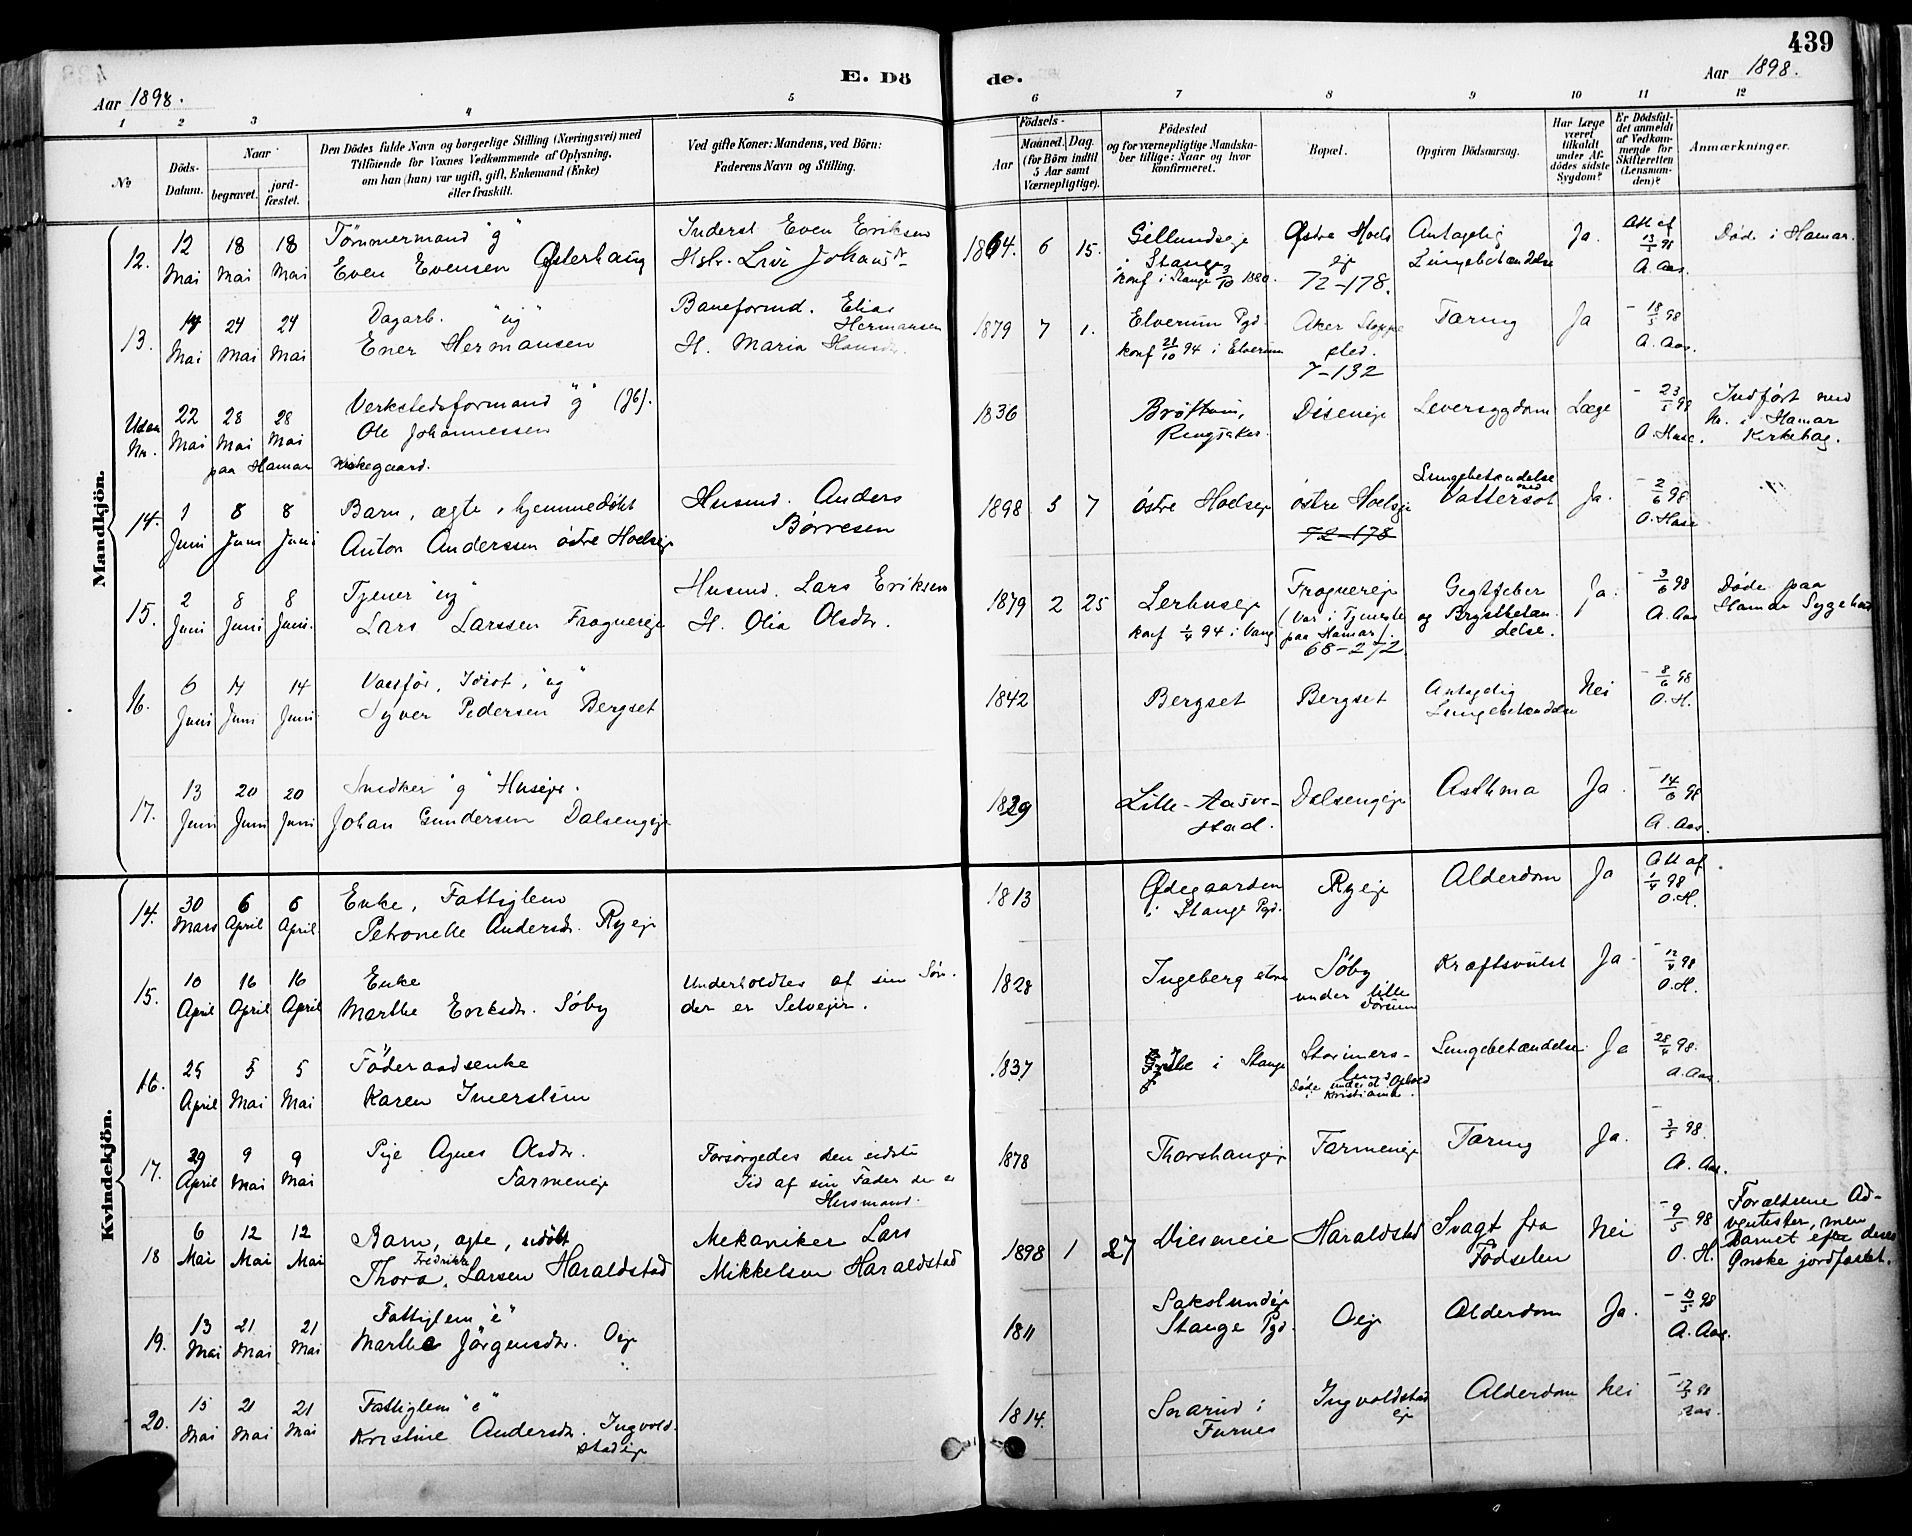 439
E. Dö de.
Aar 1898.
Aar 1898.
1 2 3 4 5 6 7 8 9 10 11 12
No
Döds-Datum.
Naar
begravet.
jord-fæstet.
Den Dödes fulde Navn og borgerlige Stilling (Næringsvei) med
Tilföiende for Voxnes Vedkommende af Oplysning,
om han (hun) var ugift, gift, Enkemand (Enke)
eller fraskilt.
Ved gifte Koner: Mandens, ved Börn:
Faderens Navn og Stilling.
Födsels-
Aar
Maaned. Dag.
(for Börn indtil
5 Aar samt
Værnepligtige).
Födested
og for værnepligtige Mandska-
ber tillige: Naar og hvor
konfirmeret.
Bopæl.
Opgiven Dödsaarsag.
Har Læge
været
tilkaldt
under Af-
dödes sidste
Sygdom?
Er Dödsfal-
det anmeldt
af Vedkom-
mende for
Skifteretten
(Lensman-
den)?
Anmærkninger.
Mandkjön.
12. 12 Mai 18 Mai 18 Mai
Tømmermand "g"
Even Evensen Østerhaug
Inderst Even Eriksen
Hstr. Livi Johansd.
1864. 6 15.
Gillundseje
i Stange
konf i Stange 3/10 1880.
Østre Hoels
eje
72-178.
Antagelig
Lungebetændelse
Ja.
Att af
13/5 98
A. Aas.
Død i Hamar.
13. 14 Mai 24 Mai 24 Mai
Dagarb. "ug"
Ener Hermansen
Baneformd. Elias
Hermansen
H. Maria Hansdr.
1879 7 1.
Elverum Pgd.
konf 21/10 94 i Elverum
Aker Stoppe
sted.
7-132
Tæring
Ja
- 18/5 98
A. Aas.
Uden Nr. 22 Mai 28 Mai 28 Mai
paa Hamar Kirkegaard.
Verkstedsformand "g" (J6).
Ole Johannessen
1836
Brøttum,
Ringsaker.
Diseneje
Leversygdom
Læge
- 23/5 98
O. Huse.
Indført med
Nr. i Hamar
Kirkebog.
14. 1 Juni 8 Juni 8 Juni
Barn, ægte, hjemmedøbt
Anton Anderssen østre Hoelseje
Husmd. Anders
Børresen
1898 5 7
østre Hoelseje
østre Hoelseje
72-178
Lungebetændelse
med
Vattersot
Ja.
- 2/6 98
O. Huse
15. 2 Juni 8 Juni 8 Juni.
Tjener "ug"
Lars Larssen Frognereje
Husmd. Lars Eriksen
H. Olia Olsdr.
1879 2 25
Lerhuseje
konf 1/4 94 i Vang
Frognereje
(Var i Tjeneste
paa Hamar).
68-272.
Gigtfeber
og Brystbetæn-
delse.
Ja.
- 3/6 98
A. Aas
Døde paa
Hamar Sygehus
16. 6 Juni 14 Juni 14 Juni
Vanfør, Idiot, "ug"
Syver Pedersen Bergset
1842
Bergset
Bergset
Antagelig
Lungebetændelse
Nei
- 8/6 98
O. H.
17. 13 Juni 20 Juni 20 Juni
Snedker "g" Husejer.
Johan Gundersen Dalsengeje
1829
Lille-Aasve-
stad.
Dalsengeje
Asthma
Ja.
- 14/6 98
A. Aas.
Kvindekjön.
14. 30 Mars 6 April 6 April
Enke, Fattiglem
Petronelle Andersdr. Ryeje
1813
Ødegaarden
i Stange Pgd.
Ryeje
Alderdom
Ja
Att af
1/4 98
O. H.
15. 10 April 16 April 16 April
Enke
Marthe Eriksdr. Søby
Underholdtes af sin Søn.
der er Selvejer.
1828
Ingeberg store
Søby
under lille
Kræftsvulst
Ja.
- 12/4 98
O. H.
16. 25 April 5 Mai 5 Mai
Föderaadsenke
Karen Imerslun
1837
i Stange
Døde under et Ophold
i Kristiania.
Lungebetændelse.
Ja
28/4 98.
A. Aas.
17. 29 April 9 Mai 9 Mai
Pige Agnes Olsdtr.
Farmeneje
Forsørgedes den sidste
Tid af sin Fader der er
Husmand.
1878
Thorshaugeje
Farmeneje
Tæring
Ja.
- 3/5 98.
A. Aas.
18 6 Mai 12 Mai 12 Mai
Barn, ægte, udøbt
Thora Fredrikke Larsen Haraldstad
Mekaniker Lars
Mikkelsen Haraldstad
1898 1 27
Haraldstad
Svagt fra
Fødselen
Nei
- 9/5 98
O. H.
Forældrene Ad-
ventister, men
Barnet efter deres
Ønske jordfæstet.
19. 13 Mai 21 Mai 21 Mai
Fattiglem "e"
Marthe Jörgensdtr. Oeje
1811
Sakslundeje
Stange Pgd.
Oeje
Alderdom
Ja.
A. Aas.
20. 15 Mai 21 Mai 21 Mai
Fattiglem "e"
Kristine Andersdr. Ingvold-
stadeje
1814.
Snarud i
Furnes
Ingvoldstad
eje
Alderdom
Nei
- 17/5 98
Aas.